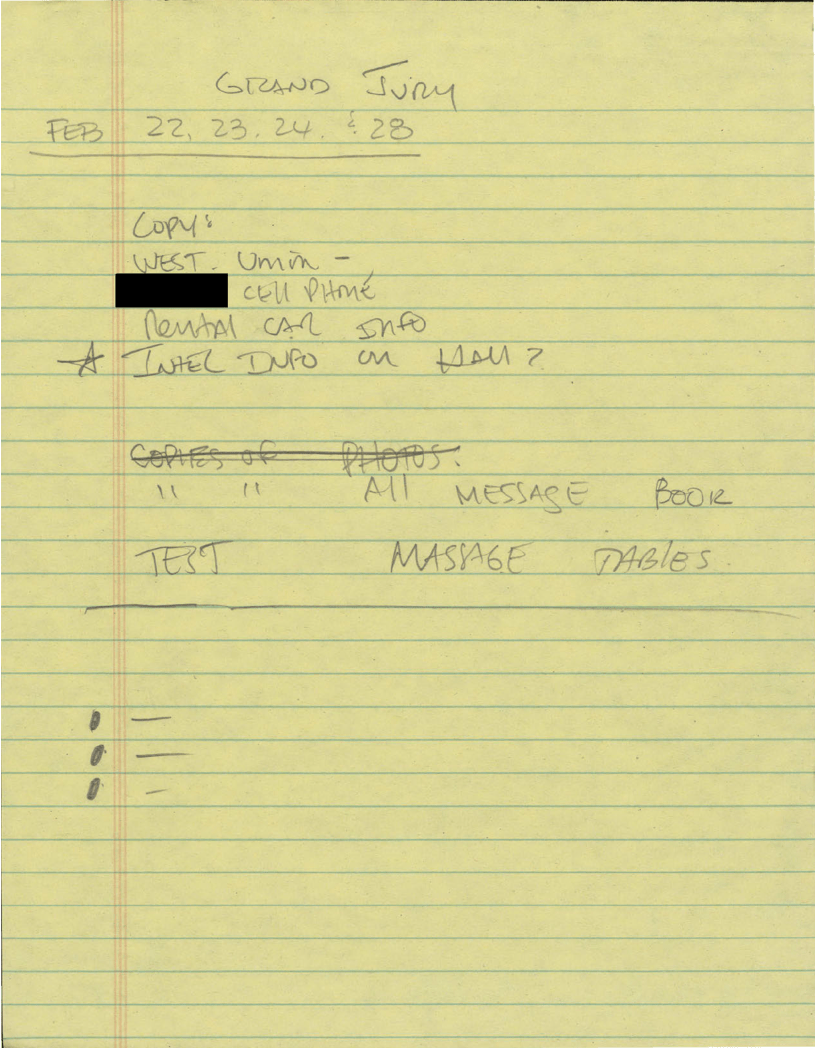 GRAND JURY
FEB 22, 23, 24. & 28
COPY:
WEST. Union -
CEll PHONE
Rental CAR INFO
☆ INTEL INFO on HAll?
COPIES OF PHOTOS.
" " All MESSAGE BOOK
TEST MASSAGE TABLES.